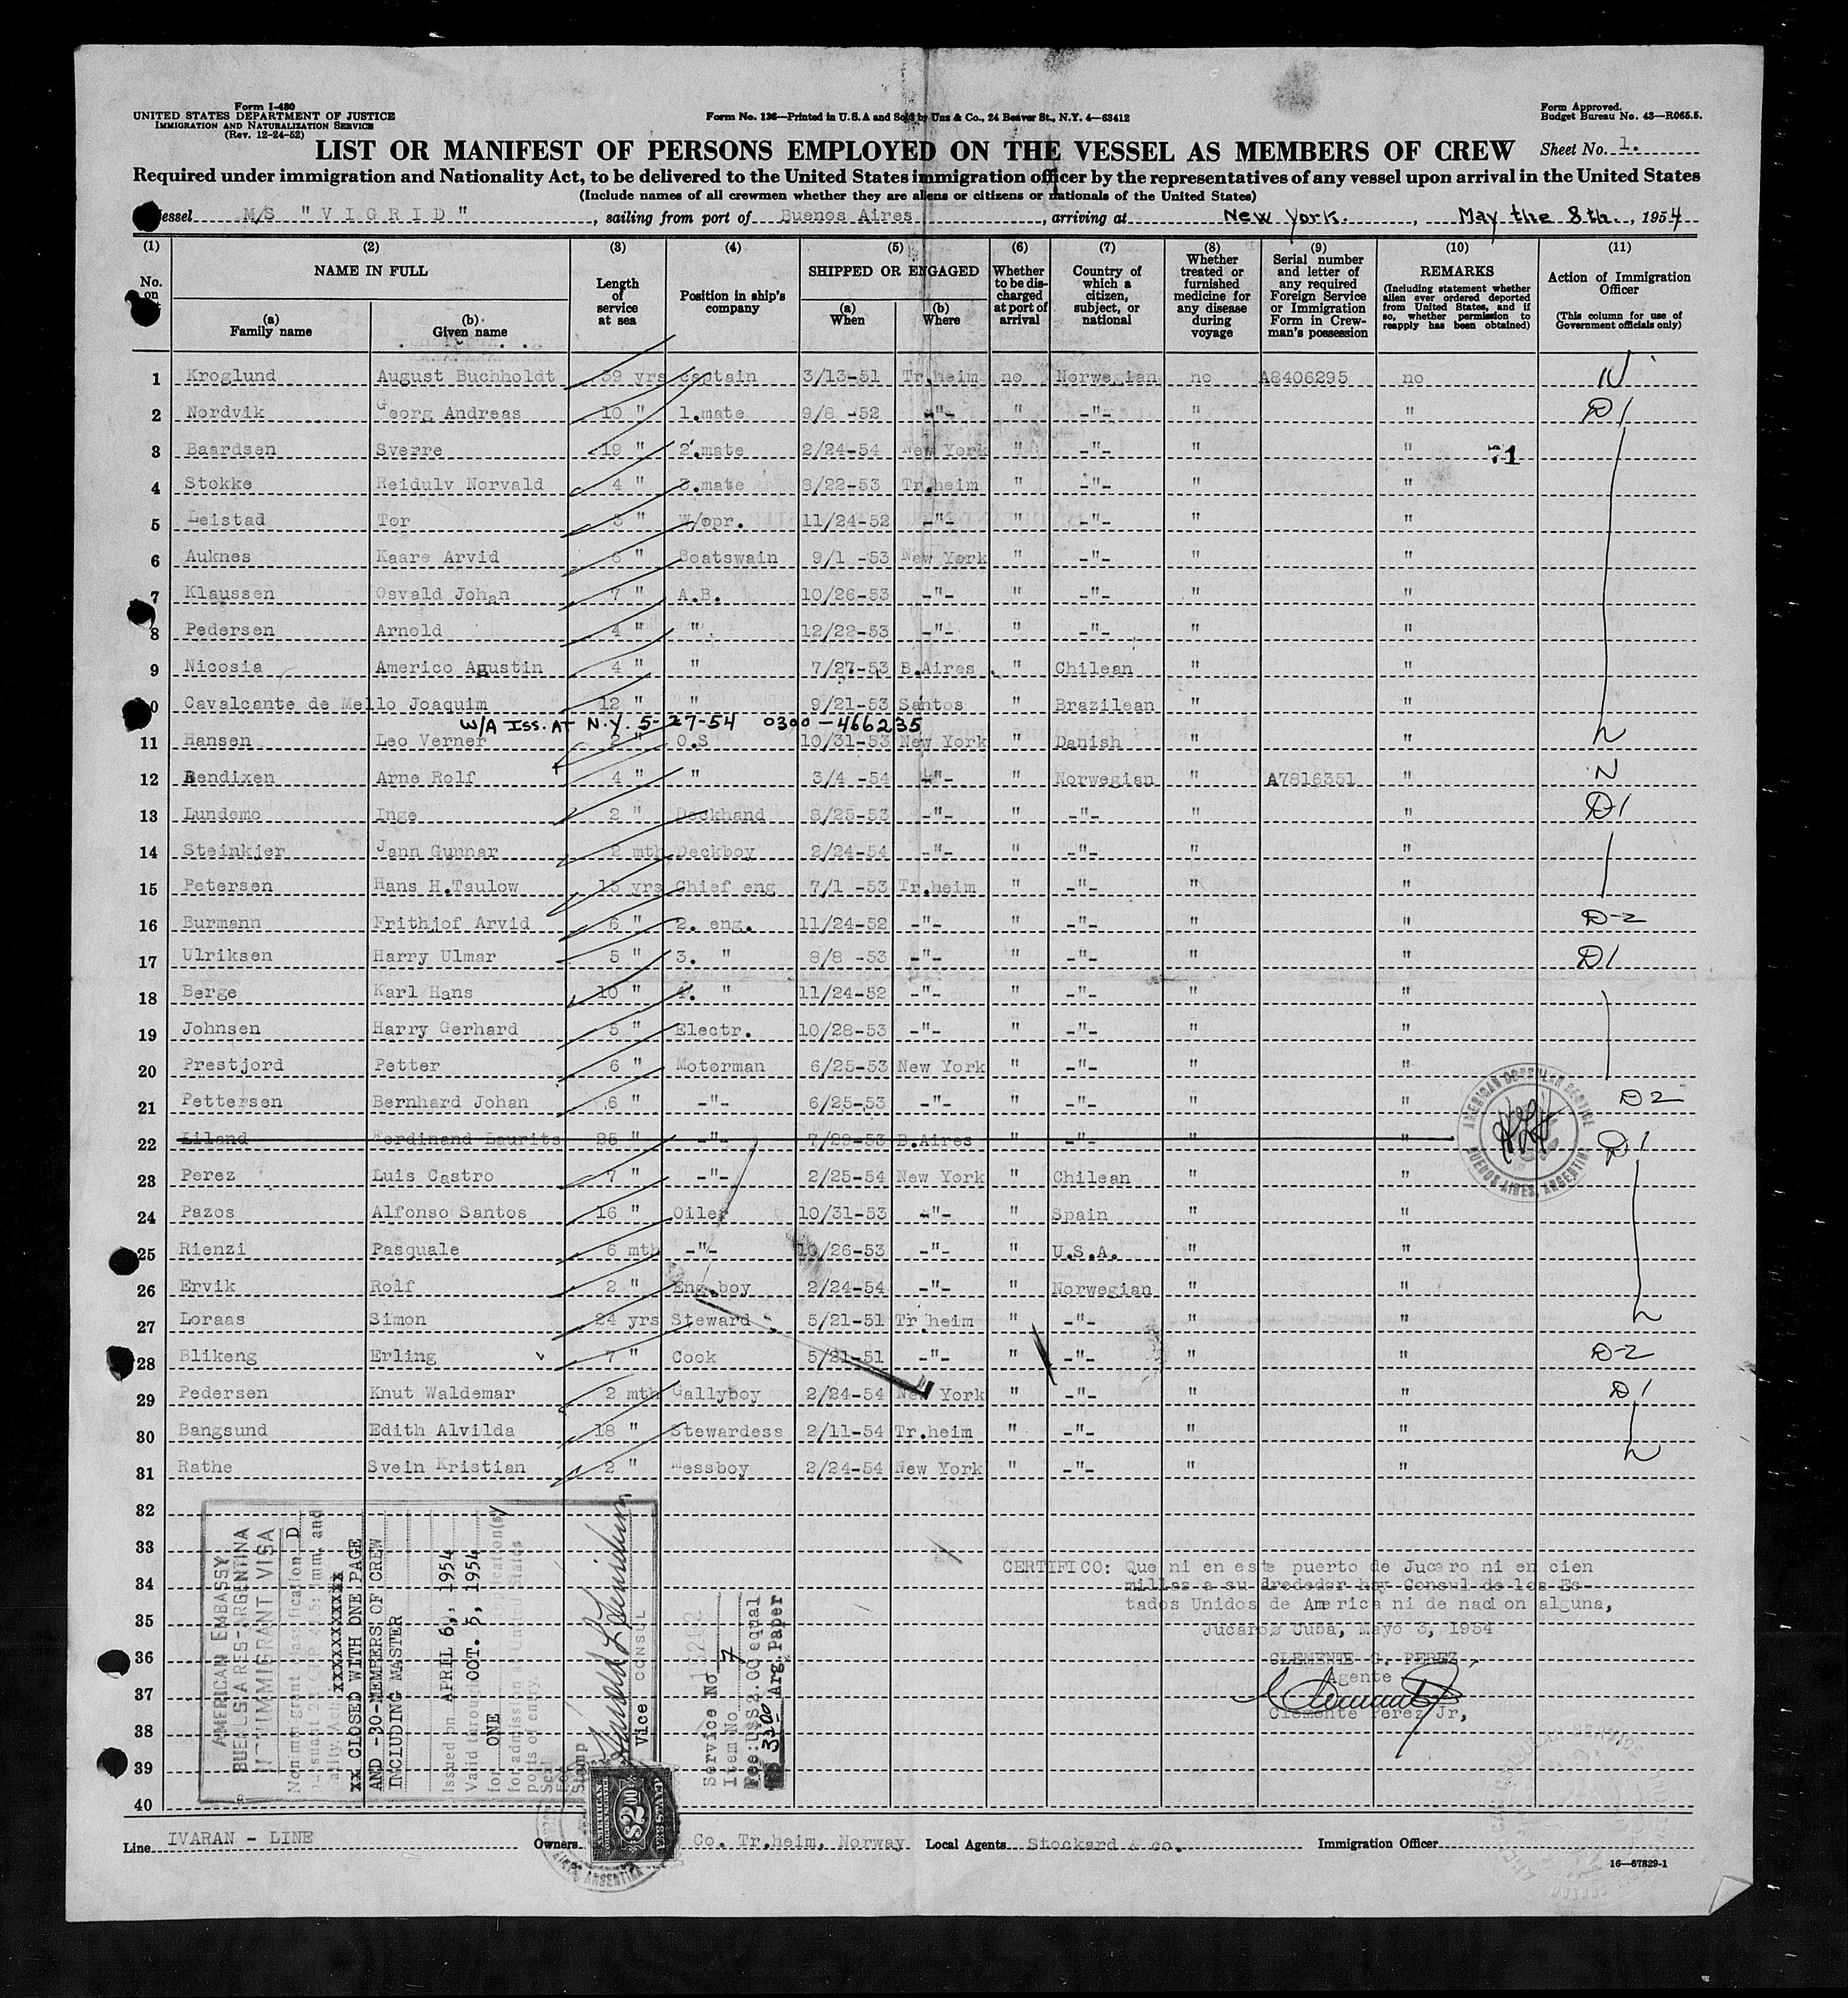 Form I-480
UNITED STATES DEPARTMENT OF JUSTICE
IMMIGRATION AND NATURALIZATION SERVICE
(Rev. 12-24-52)
Form No. 136—Printed in U.S.A and Sold by Unz & Co., 24 Beaver St., N.Y. 4—63412
Form Approved.
Budget Bureau No. 43—R065.5.
LIST OR MANIFEST OF PERSONS EMPLOYED ON THE VESSEL AS MEMBERS OF CREW Sheet No. 1.
Required under immigration and Nationality Act, to be delivered to the United States immigration officer by the representatives of any vessel upon arrival in the United States
(Include names of all crewmen whether they are aliens or citizens or nationals of the United States)
Vessel M/S "VIGRID", sailing from port of Buenos Aires, arriving at New York., May the 8th., 1954
(1) (2) (3) (4) (5) (6) (7) (8) (9) (10) (11)
No. on
NAME IN FULL
(a) Family name
(b) Given name
Length of service at sea
Position in ship's company
SHIPPED OR ENGAGED
(a) When
(b) Where
Whether to be discharged at port of arrival
Country of which a citizen, subject, or national
Whether treated or furnished medicine for any disease during voyage
Serial number and letter of any required Foreign Service or Immigration Form in Crewman's possession
REMARKS
(Including statement whether alien ever ordered deported from United States, and if so, whether permission to reapply has been obtained)
Action of Immigration Officer
(This column for use of Government officials only)
1 Kroglund August Buchholdt 39 yrs captain 3/13-51 Tr.heim no Norwegian no A8406295 no N
2 Nordvik Georg Andreas 10 " 1.mate 9/8 -52 -"- " -"- " " D1
3 Baardsen Sverre 19 " 2.mate 2/24-54 New York " -"- " " 71
4 Stokke Reidulv Norvald 4 " 3.mate 8/22-53 Tr.heim " -"- " "
5 Leistad Tor 3 " W/opr. 11/24-52 -"- " -"- " "
6 Auknes Kaare Arvid 6 " Boatswain 9/1 -53 New York " -"- " "
7 Klaussen Osvald Johan 7 " A.B. 10/26-53 -"- " -"- " "
8 Pedersen Arnold 4 " " 12/22-53 -"- " -"- " "
9 Nicosia Americo Agustin 4 " " 7/27-53 B.Aires . " Chilean " "
10 Cavalcante de Mello Joaquim 12 " " 9/21-53 Santos " Brazilean " "
W/A Iss. AT N.Y. 5-27-54 0300-466235
11 Hansen Leo Verner 2 " O.S 10/31-53 New York " Danish " "
12 Bendixen Arne Rolf 4 " " 3/4 -54 -"- " Norwegian " A7816351 " N
13 Lundemo Inge 2 " Deckhand 8/25-53 -"- " -"- " " D1
14 Steinkjer Jann Gunnar 2 mth Deckboy 2/24-54 -"- " -"- " "
15 Petersen Hans H.Taulow 15 yrs Chief eng 7/1 -53 Tr.heim " -"- " "
16 Burmann Frithjof Arvid 6 " 2. eng. 11/24-52 -"- " -"- " " D-2
17 Ulriksen Harry Ulmar 5 " 3. " 8/8 -53 -"- " -"- " " D1
18 Berge Karl Hans 10 " 4. " 11/24-52 -"- " -"- " "
19 Johnsen Harry Gerhard 5 " Electr. 10/28-53 -"- " -"- " "
20 Prestjord Petter 6 " Motorman 6/25-53 New York " -"- " "
21 Pettersen Bernhard Johan 6 " -"- 6/25-53 -"- " -"- " " D2
22 Liland Ferdinand Laurits 25 " -"- 7/29-53 B.Aires " -"- " " D1
AMERICAN CONSULAR SERVICE
BUENOS AIRES, ARGENTINA
23 Perez Luis Castro 7 " -"- 2/25-54 New York " Chilean " "
24 Pazos Alfonso Santos 16 " Oiler 10/31-53 -"- " Spain " "
25 Rienzi Pasquale 6 mth -"- 10/26-53 -"- " U.S.A. " "
26 Ervik Rolf 2 " Eng.boy 2/24-54 -"- " Norwegian " "
27 Loraas Simon 24 yrs Steward 5/21-51 Tr.heim " -"- " "
28 Blikeng Erling 7 " Cook 5/21-51 -"- " -"- " " D-2
29 Pedersen Knut Waldemar 2 mth Gallyboy 2/24-54 New York " -"- " " D1
30 Bangsund Edith Alvilda 18 " Stewardess 2/11-54 Tr.heim " -"- " "
31 Rathe Svein Kristian 2 " Messboy 2/24-54 New York " -"- " "
32
33
34
35
36
37
38
39
40
AMERICAN EMBASSY
BUENOS AIRES-ARGENTINA
NONIMMIGRANT VISA
Nonimmigrant classification D
xx CLOSED WITH ONE PAGE
AND -30-MEMPERS OF CREW
INCLUDING MASTER
Issued on APRIL 6, 1954
Valid through OCT. 5, 1954
for ONE application(s)
for admission at United States
ports of entry.
Seal
Fee
Stamp
Vice CONSUL
Service No.
Item No. 7
Fee: U$S 2.00 equal
Arg. Paper
AMERICAN
$2.00
CERTIFICO: Que ni en este puerto de Jucaro ni en cien
millas a su drededor hay Consul de los Es-
tados Unidos de America ni de nacion alguna,
Jucaro, Cuba, Mayo 3, 1954
CLEMENTE G. PEREZ,
Agente
Clemente Perez Jr,
Line IVARAN - LINE Owners Co. Tr.heim, Norway Local Agents Stockard & co. Immigration Officer
16—67829-1